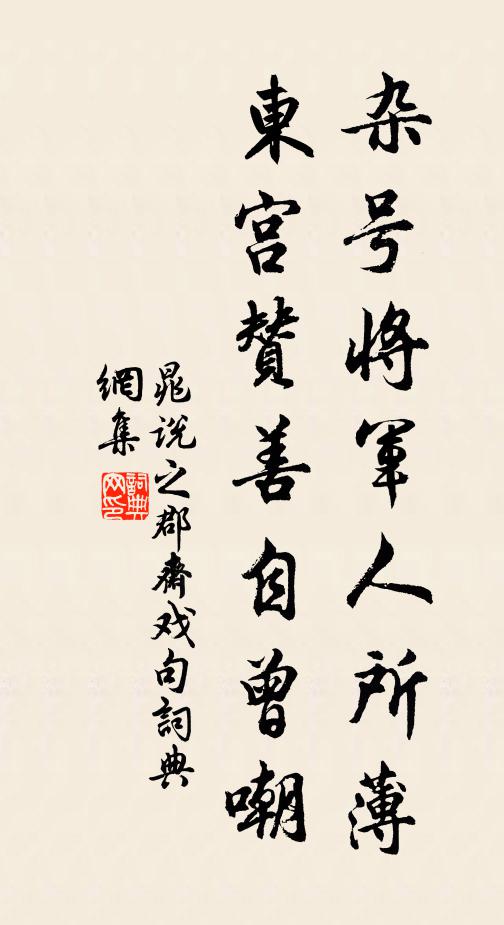 杂号将军人所薄
東宫赞善自曾嘲
晁说之郡齋戏句詞典
網集
詞典网印